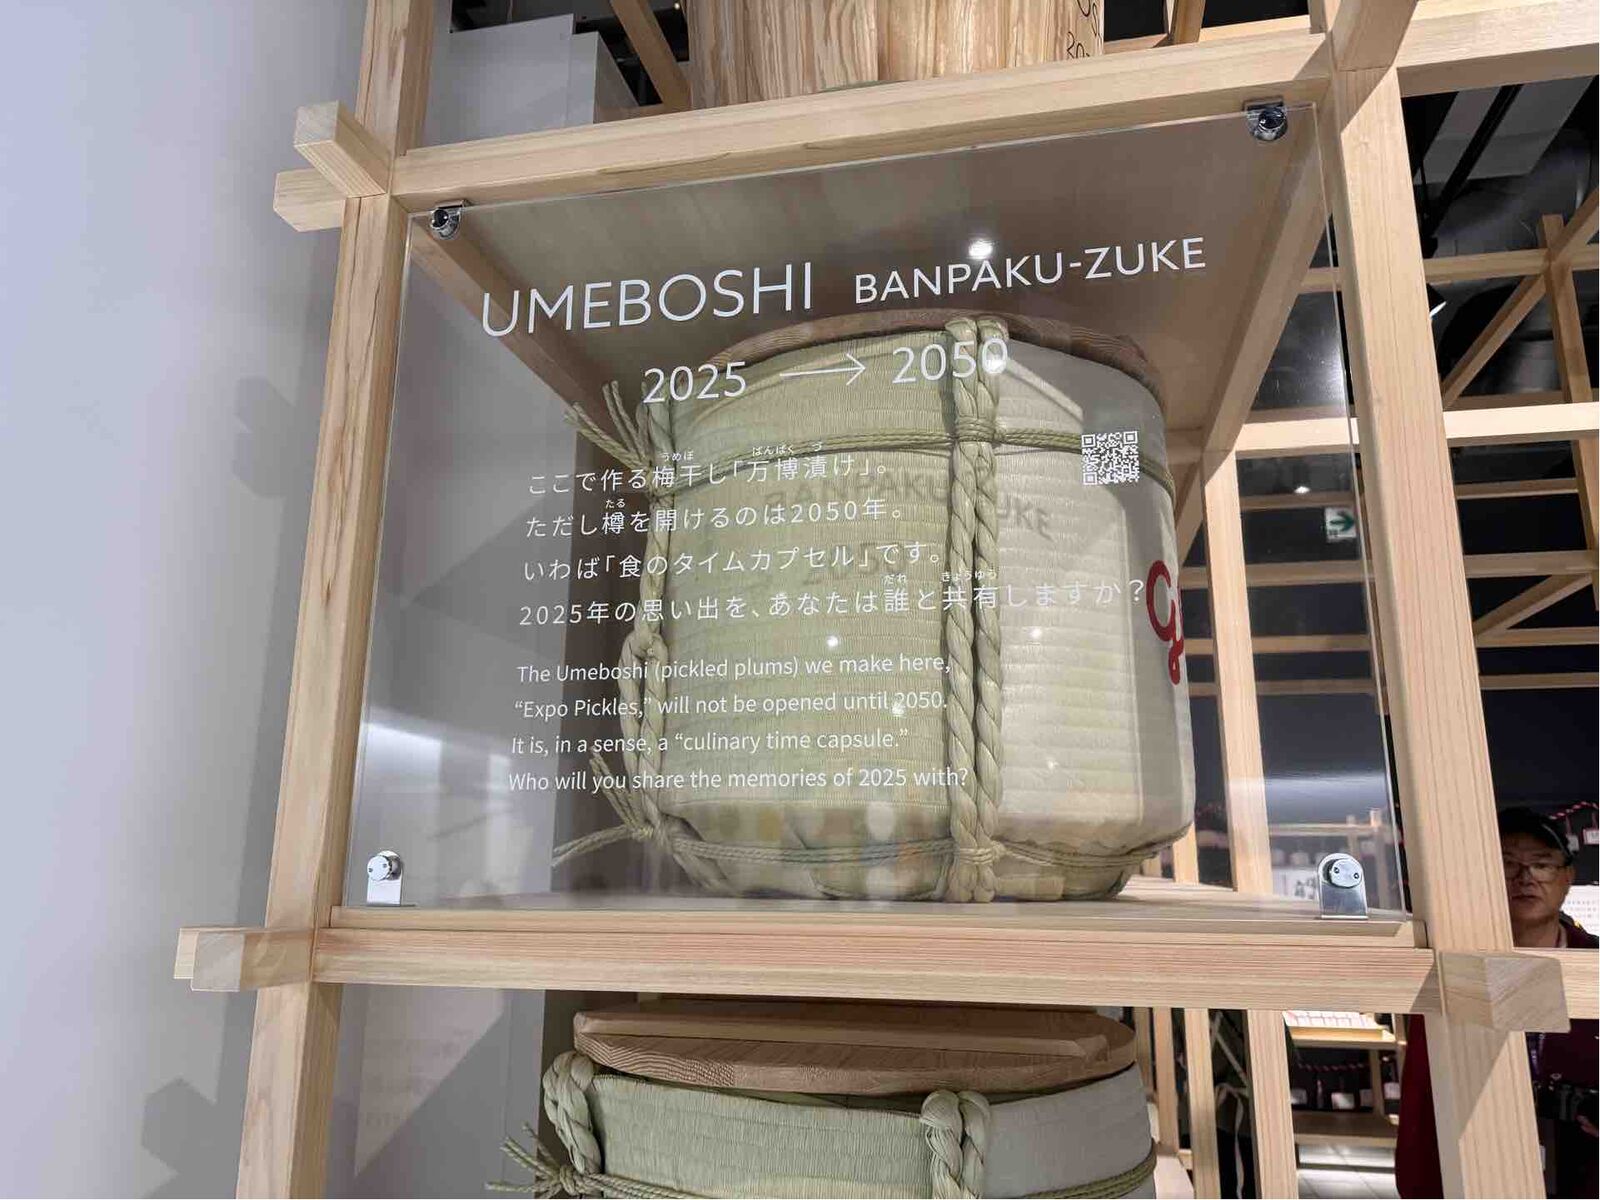 UMEBOSHI BANPAKU-ZUKE
2025 → 2050
ここで作る梅干し「万博漬け」。
ただし樽を開けるのは2050年。
いわば「食のタイムカプセル」です。
2025年の思い出を、あなたは誰と共有しますか？
The Umeboshi (pickled plums) we make here,
“Expo Pickles,” will not be opened until 2050.
It is, in a sense, a “culinary time capsule.”
Who will you share the memories of 2025 with?